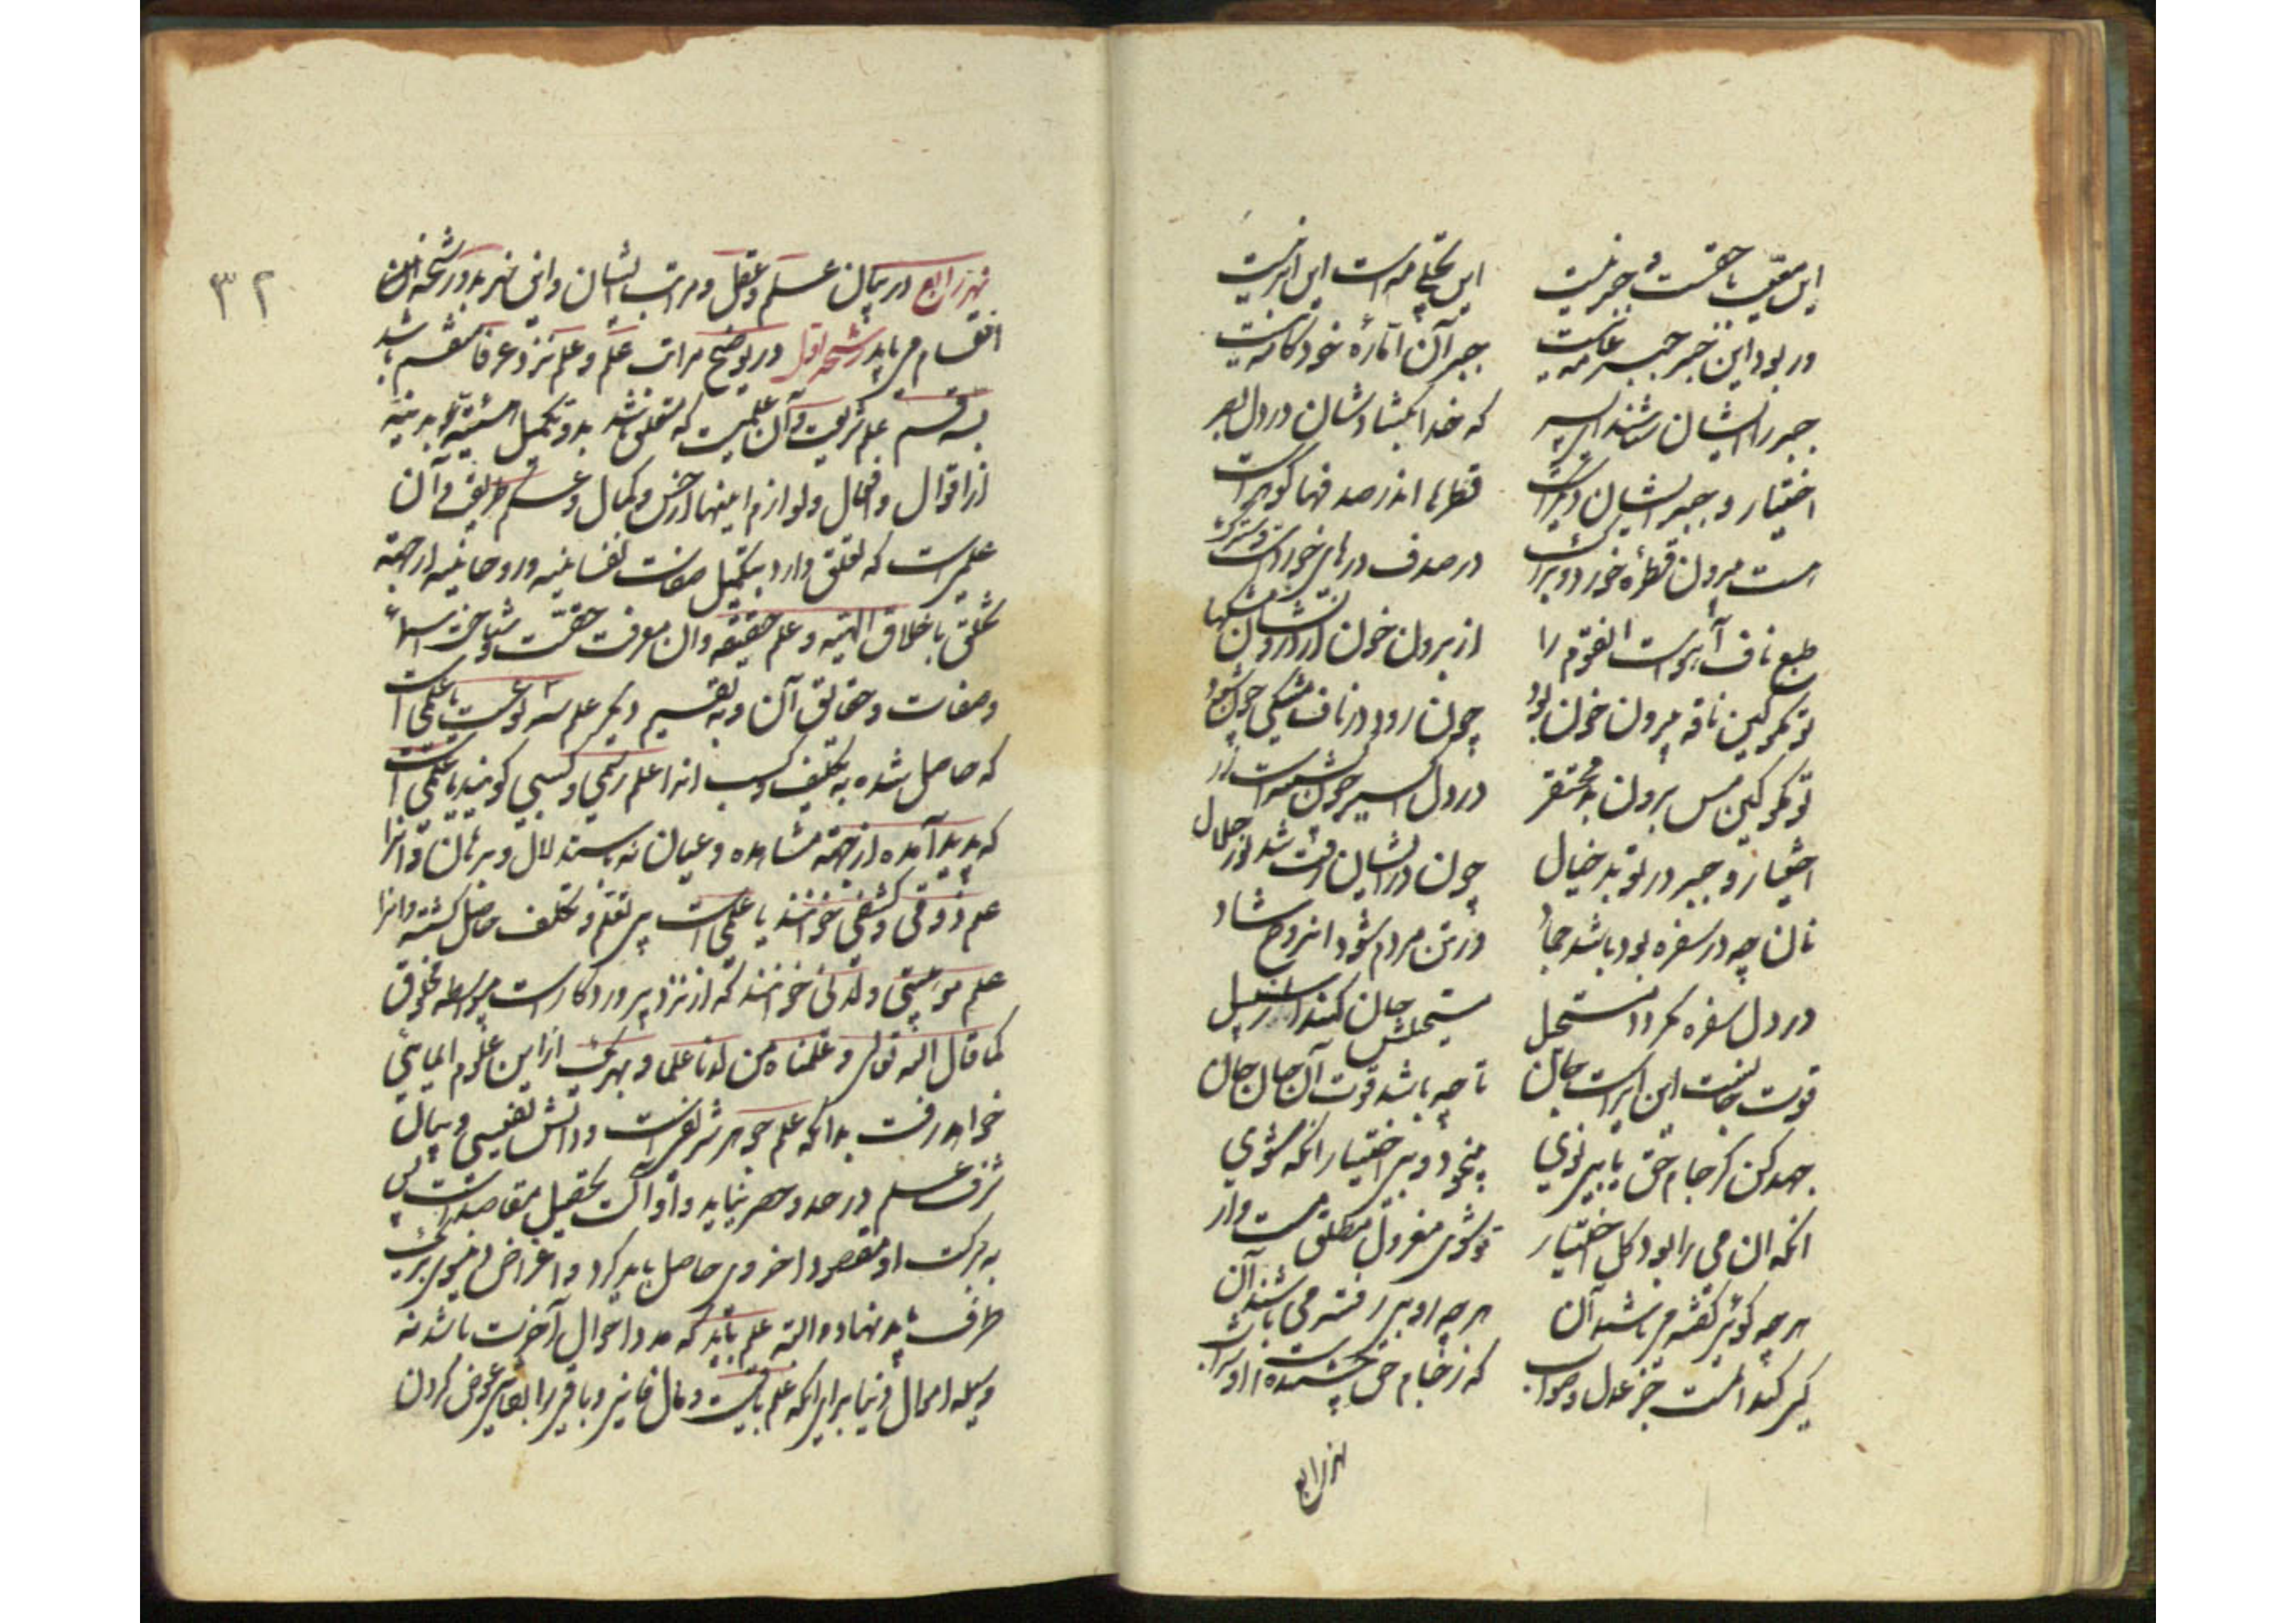 این معیت با حقست و جبر نیست این تجلی مه است این ابر نیست
ور بود این جبر جبر عامه نیست جبر آن امّارهٔ خودکامه نیست
جبر را ایشان شناسند ای پسر که خدا بکشادشان در دل بصر
اختیار و جبر ایشان دیگرست قطرها اندر صدفها گوهرست
هست بیرون قطرهٔ خورد و بزرک در صدف درهای خوردست و سترک
طبع ناف آهوست آنقوم را از برون خون از درونشان مشکها
تو مکو کین نافه بیرون خون بود چون رود در ناف مشکی چون شود
تو مکو کین مس برون بد محتقر در دل اکسیر چون کشته است زر
اختیار و جبر در تو بد خیال چون در ایشان رفت شد نور جلال
نان چه در سفره بود باشد جماد در تن مردم شود او روح شاد
در دل سفره نکردد مستحیل مستحیلش جان کند از سلسبیل
قوت جانست این ای راست جان تا چه باشد قوت آن جان جان
جهد کن کز جام حق یابی نوی بیخود و بی اختیار آنکه شوی
آنکه آن می را بود کل اختیار تو شوی معذور مطلق مست وار
هرچه کوئی کفته می باشد آن هرچه روبی رفته می باشد آن
کی کند آن مست جز عدل و صواب که ز جام حق چشیده است او شراب
نهر رابع
۳۲
نهر رابع در بیان علم و عقل و مراتب ایشان و این نهر بدو رشحه
انقسام می یابد رشحه اول در توضیح مراتب علم و علم نزد عرفا منقسم باشد
بسه قسم علم شریعت و آن علمیست که متعلق باشد بدو تکمیل هیئت بدنیه
از اقوال و افعال و لوازم اینها و علم طریقت و آن
علمی است که تعلق دارد بتکمیل صفات نفسانیه و روحانیه از جهة
تخلق باخلاق الهیه و علم حقیقة و آن معرفت حقست و شناخت اسماء
و صفات و حقایق آن و به تقسیم دیکر علم سه نوعست یا علمی است
که حاصل شده به تکلیف و کسب آنرا علم رسمی و کسبی کویند یا علمی است
که پدید آمده از جهة مشاهده و عیان نه باستدلال و برهان و آنرا
علم ذوقی و کشفی خوانند یا علمی است بی تعلم و تکلف حاصل کشته و آنرا
علم موهبتی و لدنی خوانند که از نزد پروردکار است بیواسطه مخلوق
کما قال الله تعالی و علمناه من لدنا علما و بهریک از این علوم ایمائی
خواهد رفت بدانکه علم جوهر شریف است و دانش نفیسی و بیان
شرف علم در حد و حصر نیاید و او آلت تحصیل مقاصد است پس
به برکت او مقصود اخروی حاصل باید کرد و اغراض دنیوی بر یک
طرف باید نهاد و البته علم باید که مدد احوال آخرت باشد نه
وسیله اموال دنیا برای آنکه علم باقیست و مال فانی و باقی را بفانی عوض کردن